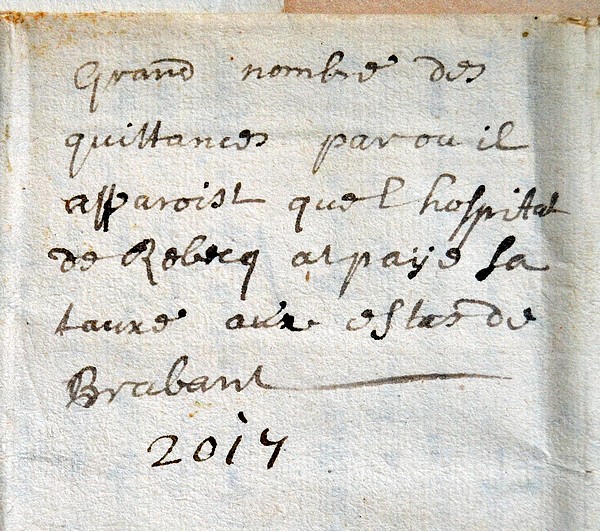 Grand nombre des
quittances par ou il
apparoist que l hospital
de Rebecq at paÿe sa
tauxe aux estas de
Brabant
2017